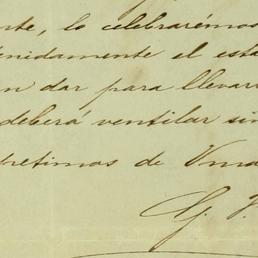 nte, lo celebrarémos
enidamente el esta
n dar para llevar
deberá ventilar sin
petimos de Vmd
G.